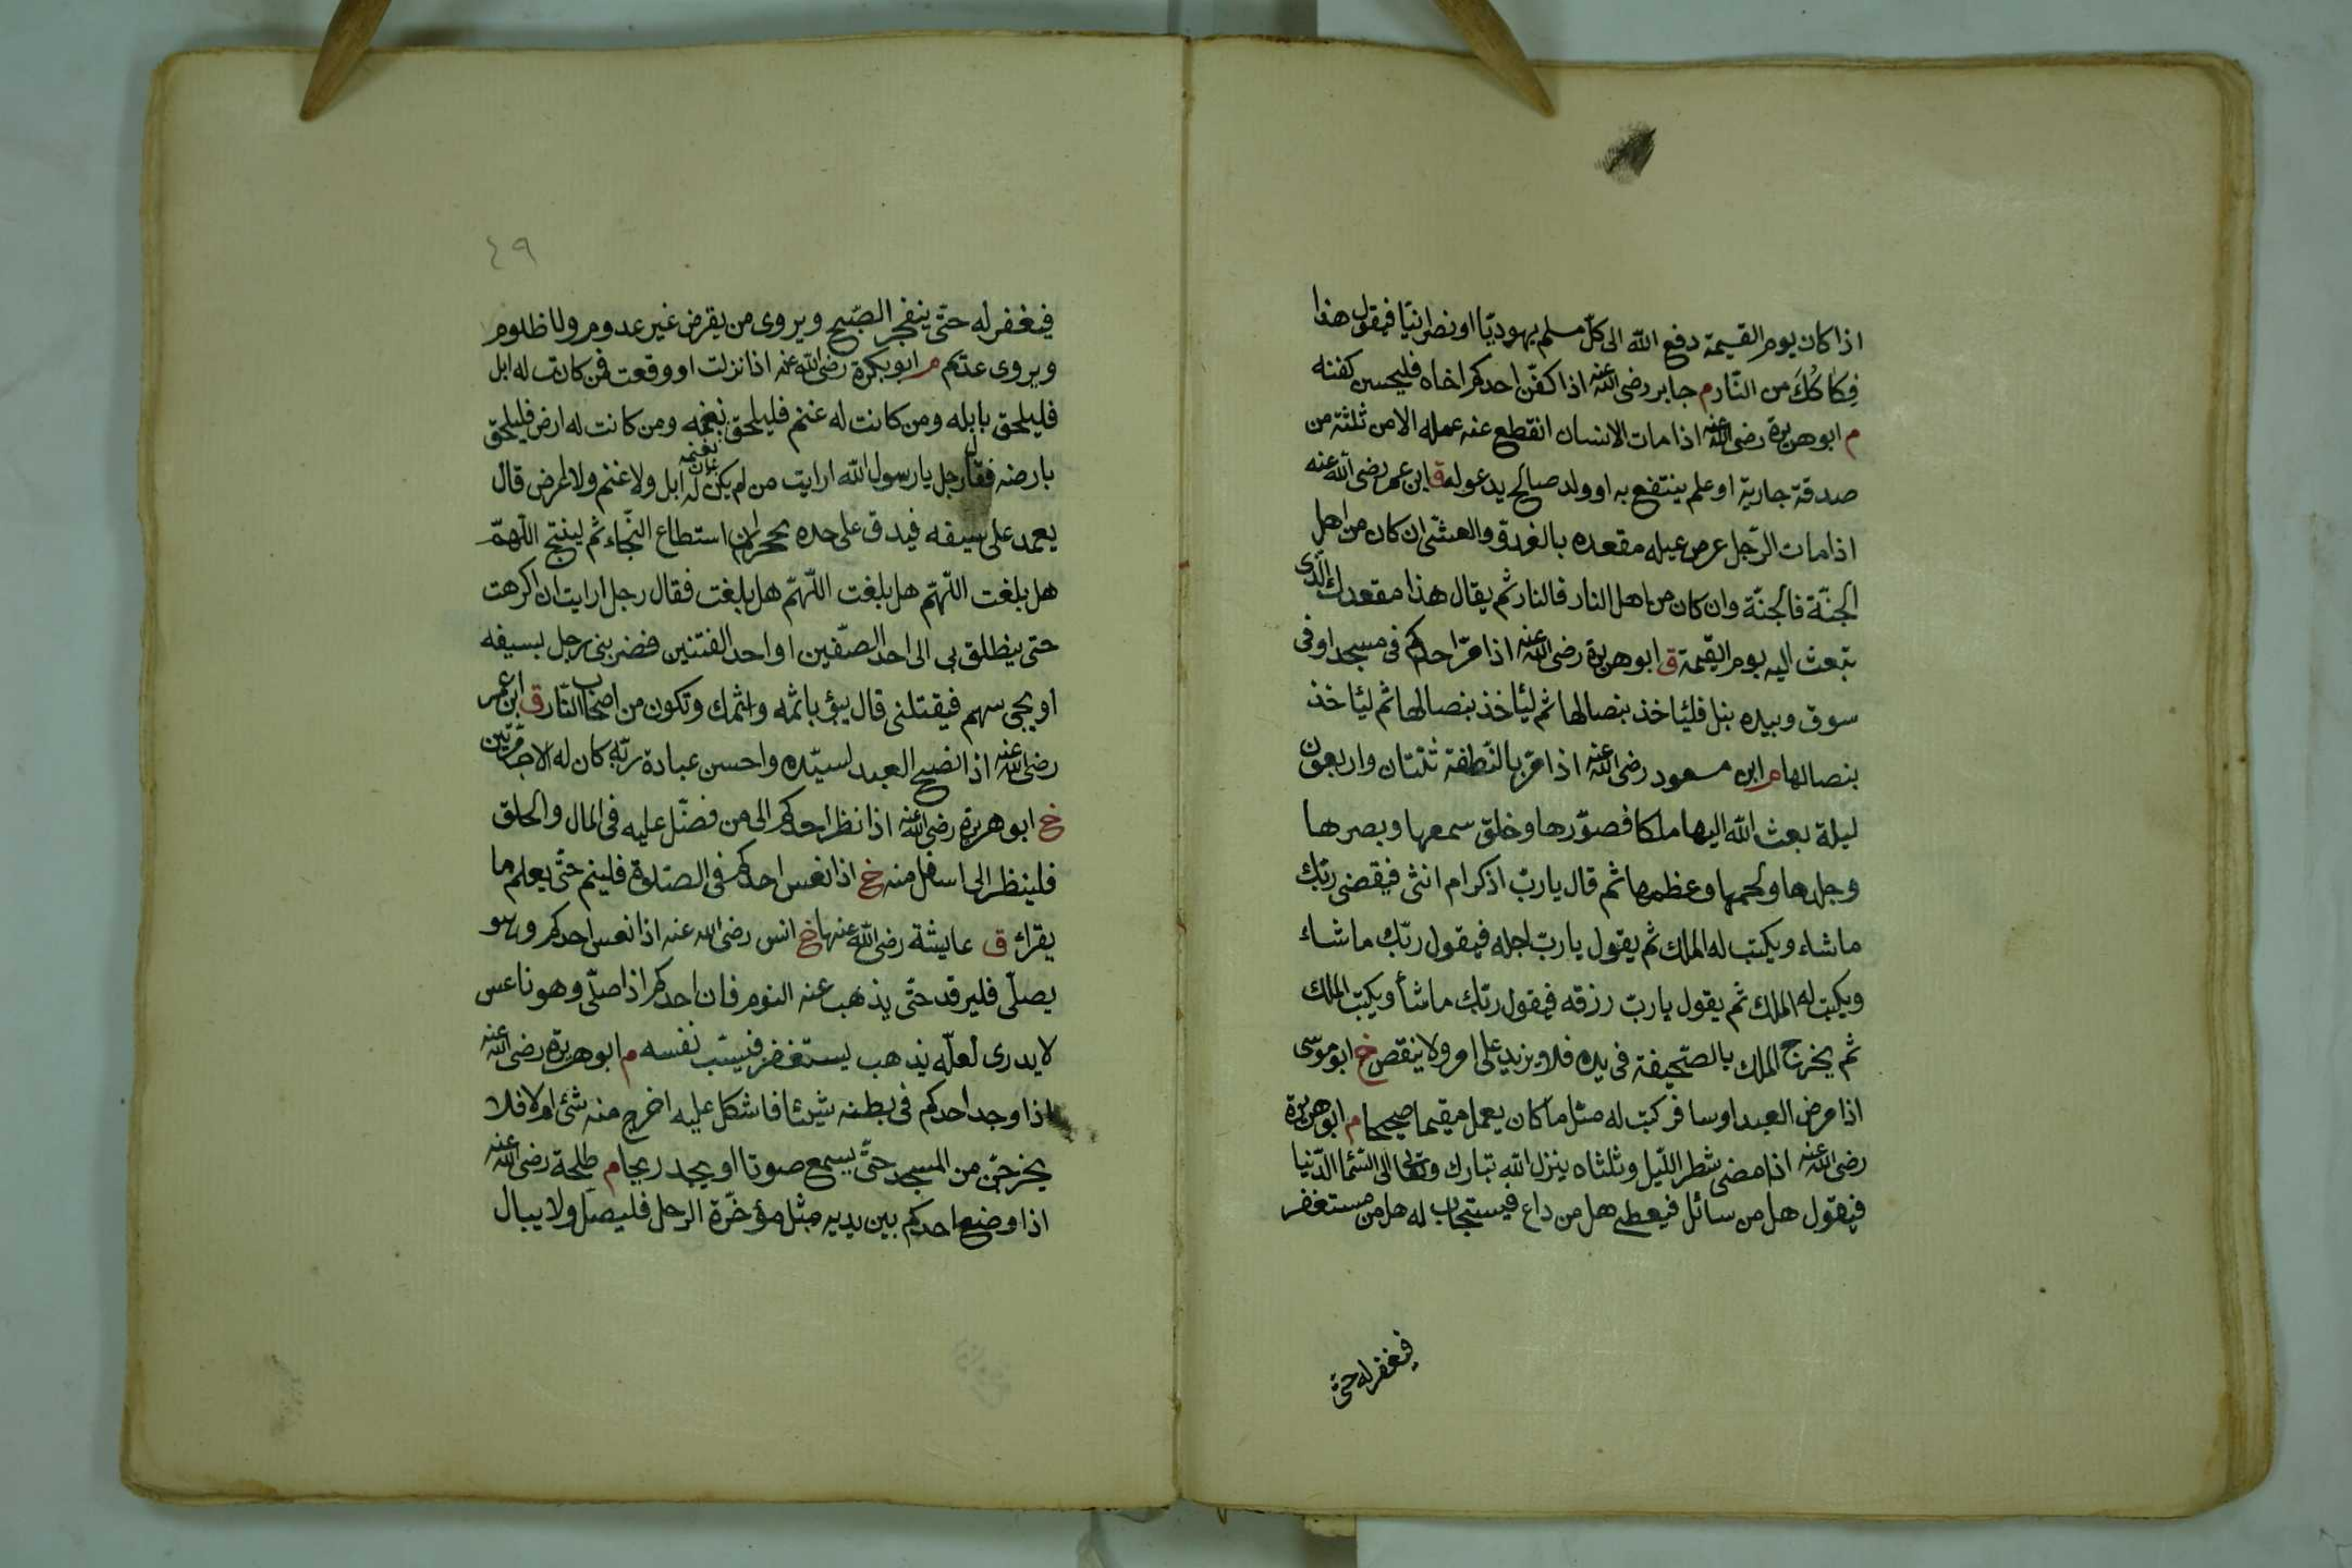 اذا كان يوم القيمة دفع الله الى كلّ مسلم يهوديّا او نصرانيّا فيقول هذا
فِكاكُكَ من النّار م جابر رضى الله عنه اذا كفّن احدكم اخاه فليحسن كفنه
م ابو هريرة رضى الله عنه اذا مات الانسان انقطع عنه عمله الا من ثلثة من
صدقة جارية او علم ينتفع به او ولد صالح يدعو له ق ابن عمر رضى الله عنه
اذا مات الرّجل عرض عيله مقعده بالغدوّ والعشّى ان كان من اهل
الجنّة فالجنّة وان كان من اهل النار فالنار ثم يقال هذا مقعدك الّذى
تبعث اليه يوم القيمة ق ابو هريرة رضى الله عنه اذا مرّ احدكم فى مسجد او فى
سوق وبيده نبل فلئاخذ بنصالها ثم لئاخذ بنصالها ثم لئاخذ
بنصالها م ابن مسعود رضى الله عنه اذا مرّ بالنّطفة ثنتان واربعون
ليلة بعث الله اليها ملكا فصوّرها وخلق سمعها وبصرها
وجلدها ولحمها وعظمها ثم قال يا ربّ اذكر ام انثى فيقضى ربّك
ما شاء ويكتب له الملك ثم يقول يا ربّ اجله فيقول ربّك ما شاء
ويكتب له الملك ثم يقول يا ربّ رزقه فيقول ربّك ما شأ ويكتب الملك
ثم يخرج الملك بالصّحيفة فى يده فلا يزيد على امر ولا ينقص خ ابو موسى
اذا مرض العبد او سافر كتب له مثل ما كان يعمل مقيما صحيحا م ابو هريرة
رضى الله عنه اذا مضى شطر اللّيل وثلثاه ينزل الله تبارك وتعالى الى السّما الدّنيا
فيقول هل من سائل فيعطى هل من داع فيستجاب له هل من مستغفر
فيغفر له حتى
٤٩
فيغفر له حتّى ينفجر الصّبح ويروى من يقرض غير عدوم ولا ظلوم
ويروى عديم م ابو بكرة رضى الله عنه اذا نزلت او وقعت فمن كانت له ابل
فليلحق بابله ومن كانت له غنم فليلحق بغنمه ومن كانت له ارض فليلحق
بغنمه
بارضه فقال رجل يا رسول الله ارايت من لم يكن له ابل ولا غنم ولا ارض قال
يعمد على سيفه فيدق على حده بحجر ان استطاع النّجاء ثم لينج اللّهمّ
هل بلغت اللّهمّ هل بلغت اللّهمّ هل بلغت فقال رجل ارايت ان اكرهت
حتى ينطلق بى الى احد الصّفين او احد الفئتين فضربنى رجل بسيفه
او يجى سهم فيقتلنى قال يبؤ باثمه واثمك وتكون من اصحاب النّار ق ابن عمر
رضى الله عنه اذا نصح العبد لسيّده واحسن عبادة ربّه كان له الاجر مرّتين
خ ابو هريرة رضى الله عنه اذا نظر احدكم الى من فضّل عليه فى المال والخلق
فلينظر الى اسفل منه خ اذا نعس احدكم فى الصّلوة فلينم حتّى يعلم ما
يقرا ق عايشة رضى الله عنها خ انس رضى الله عنه اذا نعس احدكم وهو
يصلّى فليرقد حتّى يذهب عنه النوم فان احدكم اذا صلّى وهو ناعس
لا يدرى لعلّه يذهب يستغفر فيسب نفسه م ابو هريرة رضى الله عنه
اذا وجد احدكم فى بطنه شيئا فاشكل عليه اخرج منه شئ ام لا فلا
يخرجنّ من المسجد حتّى يسمع صوتا او يجد ريحا م طلحة رضى الله عنه
اذا وضع احدكم بين يديه مثل مؤخّرة الرحل فليصل ولا يبال